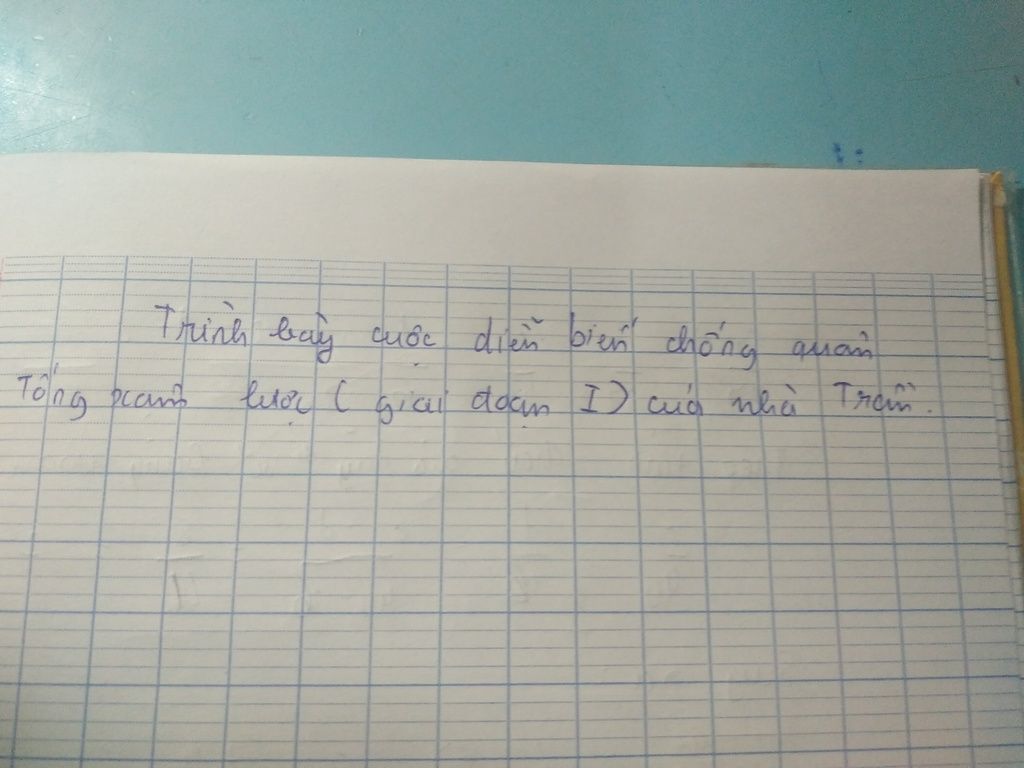 Trình bày cuộc diễn biến chống quân
Tống xâm lược ( giai đoạn I) của nhà Trần.